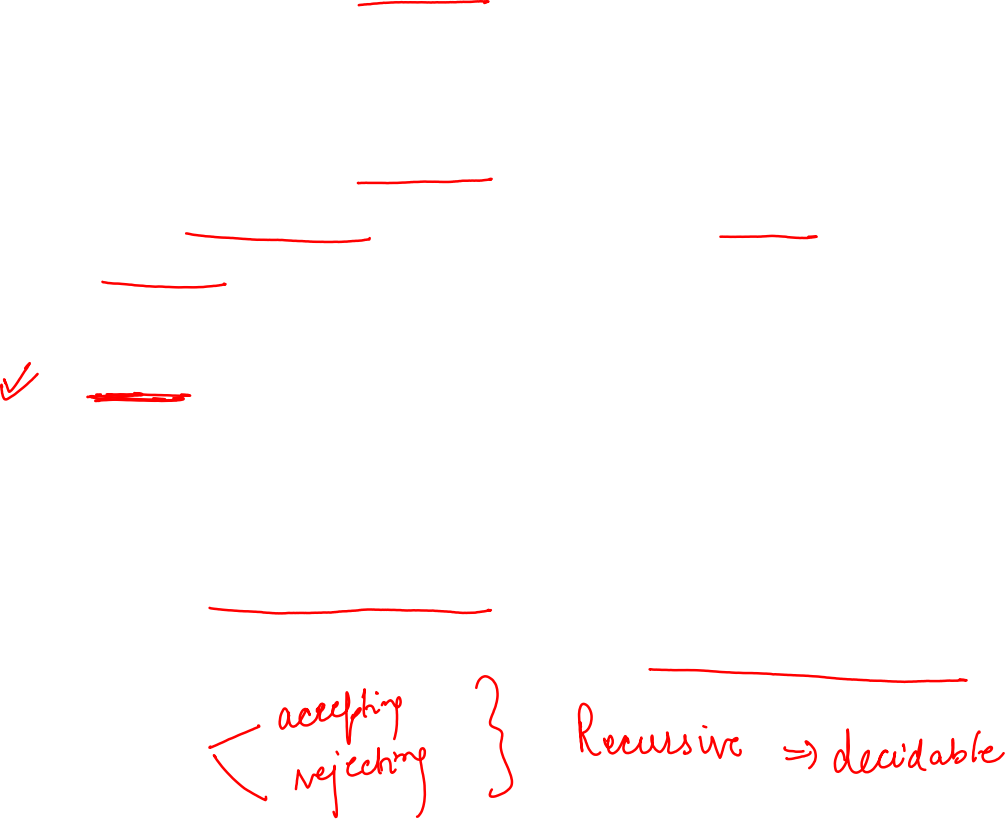 accepting
rejecting
} Recursive ⇒ decidable